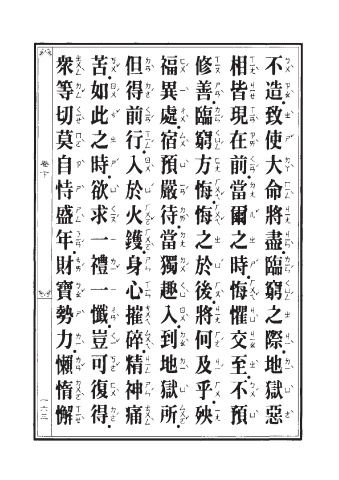 不造。致使大命將盡。臨窮之際。地獄惡
相皆現在前。當爾之時。悔懼交至。不預
修善。臨窮方悔。悔之於後。將何及乎。殃
福異處。宿預嚴待。當獨趣入。到地獄所。
但得前行。入於火鑊。身心摧碎。精神痛
苦。如此之時。欲求一禮一懺。豈可復得。
眾等切莫自恃盛年。財寶勢力。懶惰懈
卷下
一六三